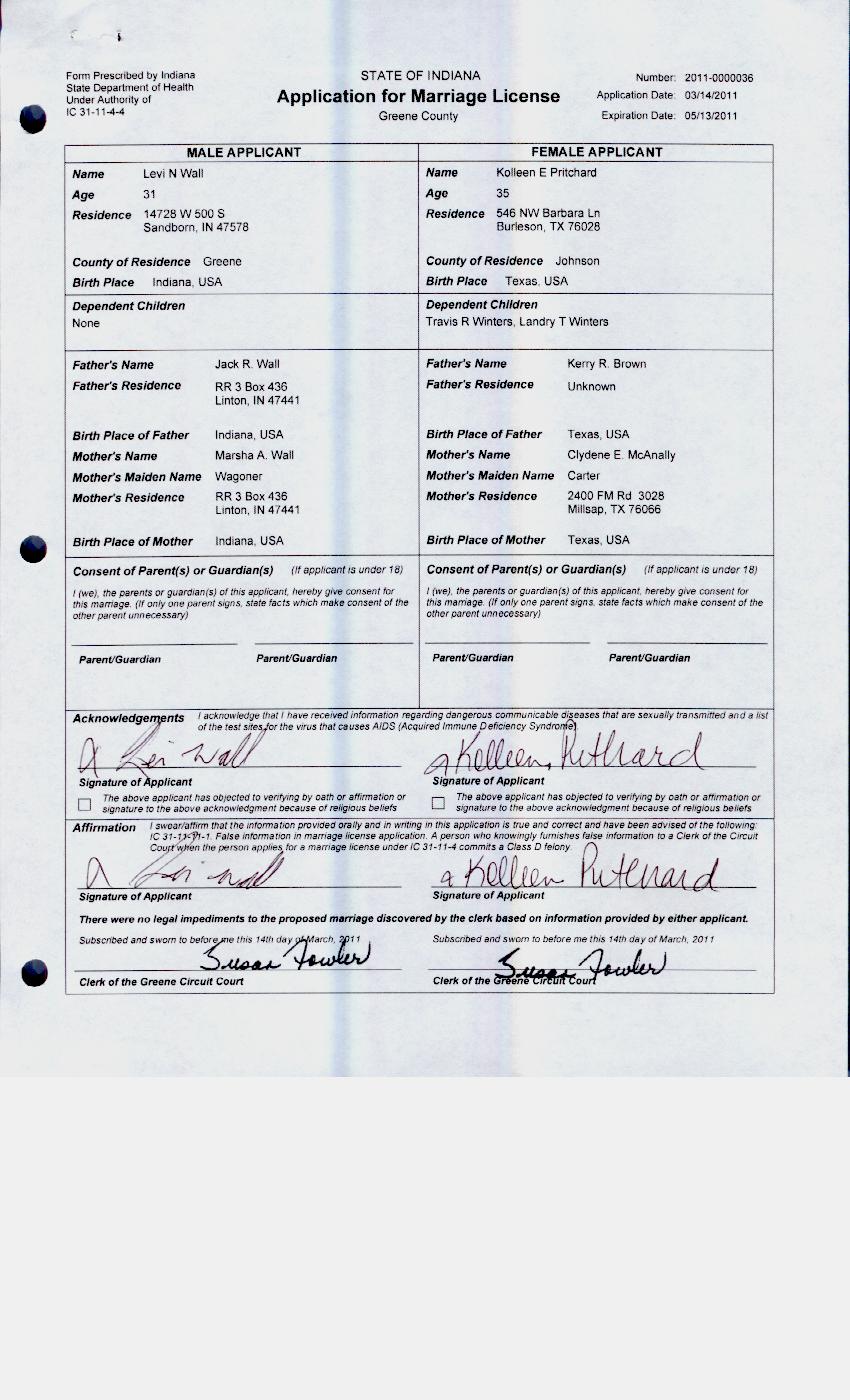 Form Prescribed by Indiana
State Department of Health
Under Authority of
IC 31-11-4-4
STATE OF INDIANA
Application for Marriage License
Greene County
Number: 2011-0000036
Application Date: 03/14/2011
Expiration Date: 05/13/2011
MALE APPLICANT
Name Levi N Wall
Age 31
Residence 14728 W 500 S
Sandborn, IN 47578
County of Residence Greene
Birth Place Indiana, USA
Dependent Children
None
Father's Name Jack R. Wall
Father's Residence RR 3 Box 436
Linton, IN 47441
Birth Place of Father Indiana, USA
Mother's Name Marsha A. Wall
Mother's Maiden Name Wagoner
Mother's Residence RR 3 Box 436
Linton, IN 47441
Birth Place of Mother Indiana, USA
Consent of Parent(s) or Guardian(s) (If applicant is under 18)
I (we), the parents or guardian(s) of this applicant, hereby give consent for
this marriage. (If only one parent signs, state facts which make consent of the
other parent unnecessary)
Parent/Guardian Parent/Guardian
FEMALE APPLICANT
Name Kolleen E Pritchard
Age 35
Residence 546 NW Barbara Ln
Burleson, TX 76028
County of Residence Johnson
Birth Place Texas, USA
Dependent Children
Travis R Winters, Landry T Winters
Father's Name Kerry R. Brown
Father's Residence Unknown
Birth Place of Father Texas, USA
Mother's Name Clydene E. McAnally
Mother's Maiden Name Carter
Mother's Residence 2400 FM Rd 3028
Millsap, TX 76066
Birth Place of Mother Texas, USA
Consent of Parent(s) or Guardian(s) (If applicant is under 18)
I (we), the parents or guardian(s) of this applicant, hereby give consent for
this marriage. (If only one parent signs, state facts which make consent of the
other parent unnecessary)
Parent/Guardian Parent/Guardian
Acknowledgements I acknowledge that I have received information regarding dangerous communicable diseases that are sexually transmitted and a list
of the test sites for the virus that causes AIDS (Acquired Immune Deficiency Syndrome).
Levi Wall Kolleen Pritchard
Signature of Applicant Signature of Applicant
The above applicant has objected to verifying by oath or affirmation or
signature to the above acknowledgment because of religious beliefs
The above applicant has objected to verifying by oath or affirmation or
signature to the above acknowledgment because of religious beliefs
Affirmation I swear/affirm that the information provided orally and in writing in this application is true and correct and have been advised of the following:
IC 31-11-11-1. False information in marriage license application. A person who knowingly furnishes false information to a Clerk of the Circuit
Court when the person applies for a marriage license under IC 31-11-4 commits a Class D felony.
Levi Wall Kolleen Pritchard
Signature of Applicant Signature of Applicant
There were no legal impediments to the proposed marriage discovered by the clerk based on information provided by either applicant.
Subscribed and sworn to before me this 14th day of March, 2011 Subscribed and sworn to before me this 14th day of March, 2011
Susan Fowler Susan Fowler
Clerk of the Greene Circuit Court Clerk of the Greene Circuit Court